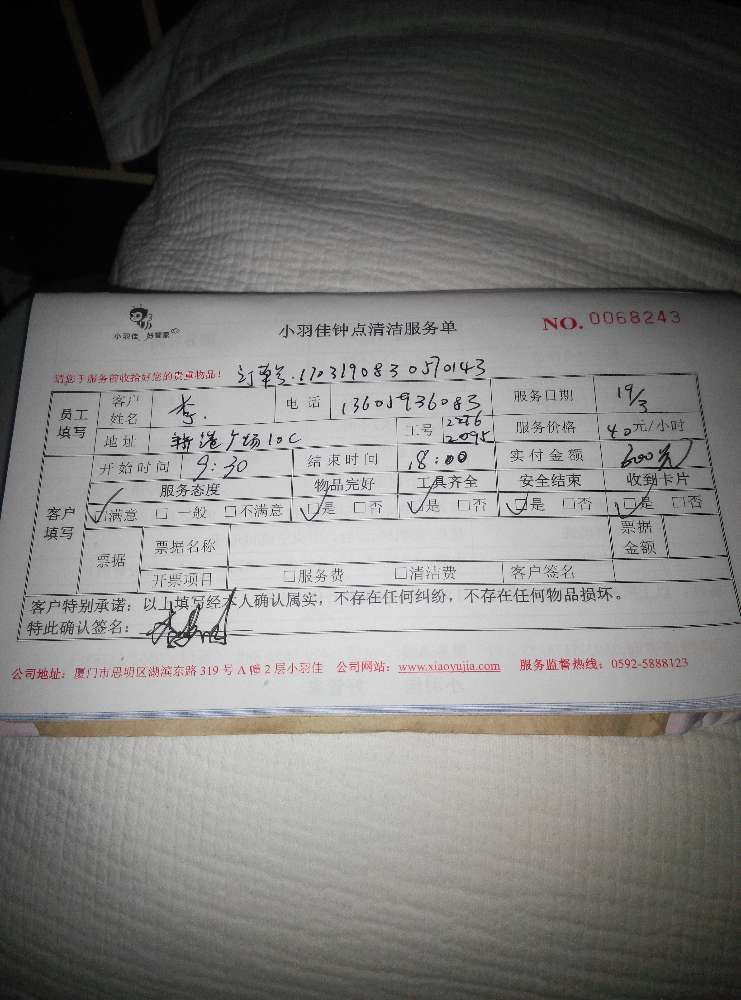 小羽佳 好管家
小羽佳钟点清洁服务单
NO. 0068243
请您于服务前收拾好您的贵重物品!
订单号.170319083 0570143
员工填写 客户姓名 李. 电话 13605936083 服务日期 19/3
地址 广场10C 工号 2276 2095 服务价格 40元/小时
开始时间 9:30 结束时间 18:00 实付金额 600元
客户填写 服务态度 物品完好 工具齐全 安全结束 收到卡片
☑满意 □一般 □不满意 ☑是 □否 ☑是 □否 ☑是 □否 ☑是 □否
票据 票据名称 票据金额
开票项目 □服务费 □清洁费 客户签名
客户特别承诺:以上填写经本人确认属实,不存在任何纠纷,不存在任何物品损坏。
特此确认签名:
公司地址:厦门市思明区湖滨东路319号A幢2层小羽佳 公司网站:www.xiaoyujia.com 服务监督热线:0592-5888123